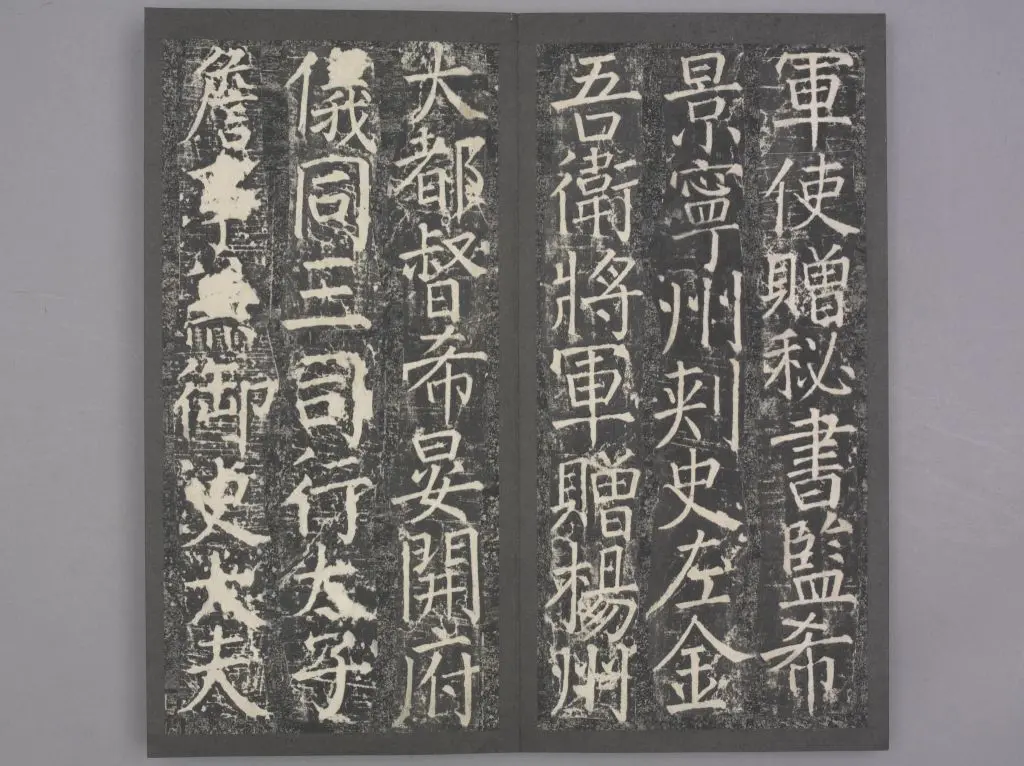 軍使贈秘書監希
景寧州刾史左金
吾衛將軍贈楊州
大都督希晏開府
儀同三司行太子
詹事兼御史大夫